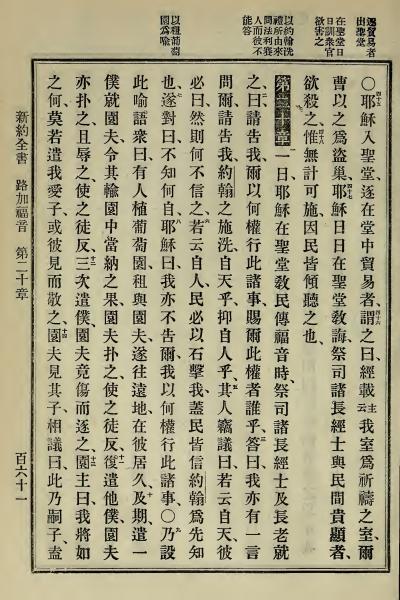 逐貿易者
出聖堂
在聖堂日
日訓衆官
欲害之
以約翰洗
禮所由來
問法利賽
人而彼不
能答
以租葡萄
園爲喻
○耶穌入聖堂、遂在堂中貿易者、謂之曰、經載主云我室爲祈禱之室、爾
曹以之爲盜巢、耶穌日日在聖堂敎誨、祭司諸長經士與民間貴顯者、
欲殺之、惟無計可施、因民皆傾聽之也、
第二十章一日耶穌在聖堂敎民傳福音時、祭司諸長經士及長老就
之曰、請告我、爾以何權行此諸事、賜爾此權者誰乎、答曰、我亦有一言
問爾、請告我、約翰之施洗、自天乎、抑自人乎、其人竊議曰、若云自天、彼
必曰、然則何不信之、若云自人、民必以石擊我、蓋民皆信約翰爲先知
也、遂對曰、不知何自、耶穌曰、我亦不告爾、我以何權行此諸事、○乃設
此喻語衆曰、有人植葡萄園、租與園夫、遂往遠地、在彼居久、及期、遣一
僕就園夫、令其輸園中當納之果、園夫扑之、使之徒反、復遣他僕、園夫
亦扑之、且辱之、使之徒反、三次遣僕、園夫竟傷而逐之、園主曰、我將如
之何、莫若遣我愛子、或彼見而敬之、園夫見其子、相議曰、此乃嗣子、盍
新約全書　路加福音　第二十章　百六十一